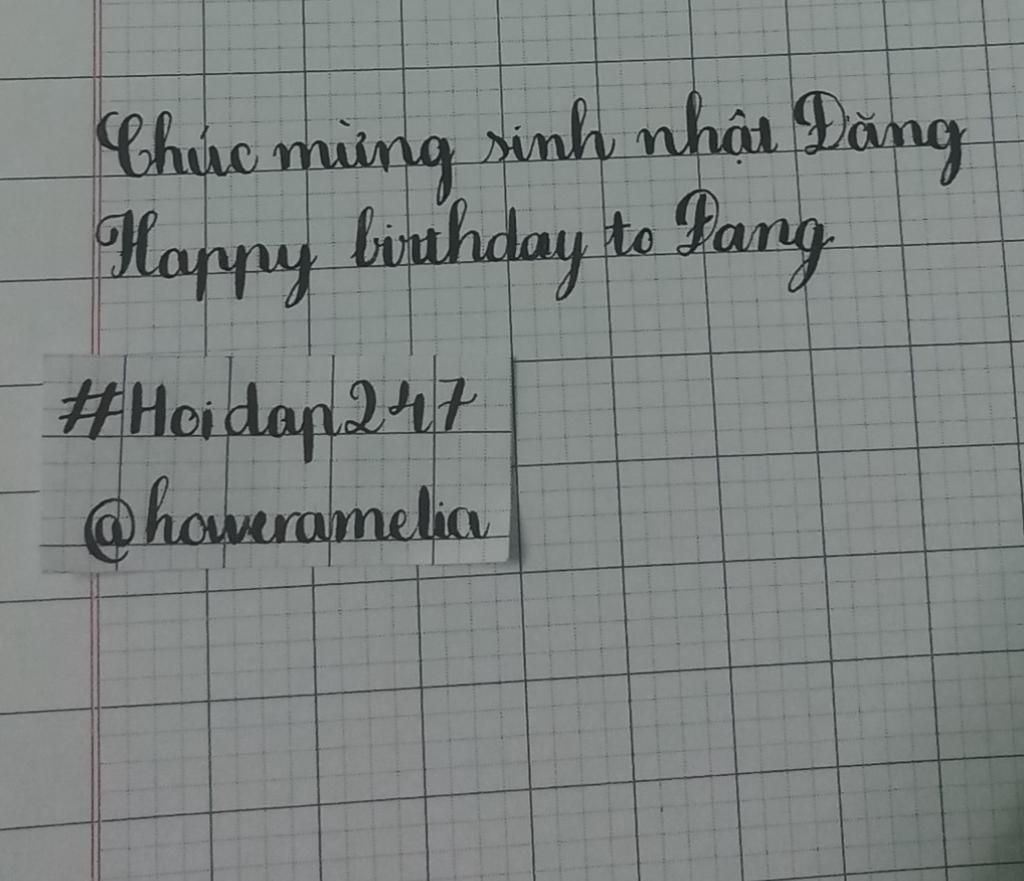 Chúc mừng sinh nhật Đăng
Happy birthday to Đang
#Hoidap247
@haweramelia